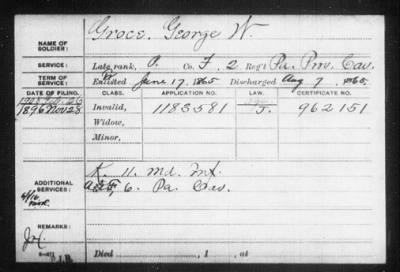 Groce, George W.
NAME OF SOLDIER:
SERVICE: Late rank, P. Co. F, 2 Reg't Pa. Prov. Cav.
TERM OF SERVICE: Enlisted June 17, 1865 Discharged Aug 7, 1865
DATE OF FILING. CLASS. APPLICATION NO. LAW. CERTIFICATE NO.
1896 Nov 28 Invalid, 1183581 J. 962151
Widow,
Minor,
ADDITIONAL SERVICES: K. 11. Md. Inf.
F, 6. Pa. Cav.
REMARKS:
Died , 1 , at